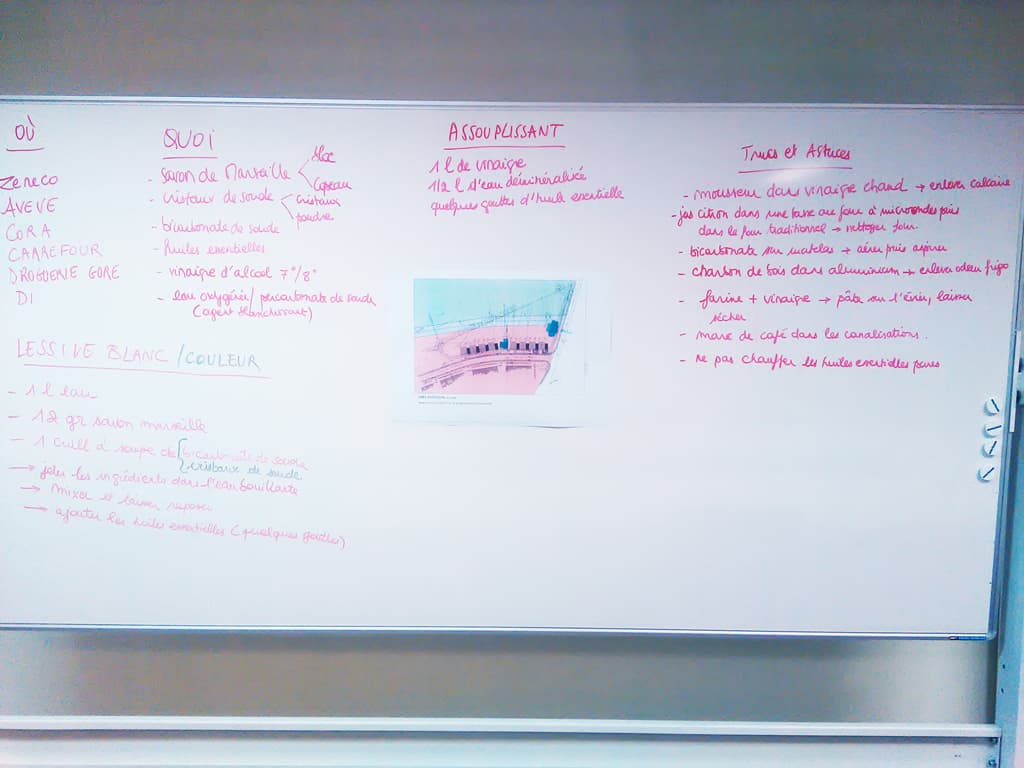 OÙ
ZENECO
AVEVE
CORA
CARREFOUR
DROGUERIE GORE
DI
QUOI
- Savon de Marseille
bloc
copeau
- cristaux de soude
cristaux
poudre
- bicarbonate de soude
- huiles essentielles
- vinaigre d'alcool 7°/8°
- eau oxygénée / percarbonate de soude
(agent blanchissant)
LESSIVE BLANC / COULEUR
- 1 l eau
- 12 gr savon marseille
- 1 cuill à soupe de
bicarbonate de soude
cristaux de soude
→ jeter les ingrédients dans l'eau bouillante
→ mixer et laisser reposer
→ ajouter les huiles essentielles (quelques gouttes)
ASSOUPLISSANT
1 l de vinaigre
1/2 l d'eau déminéralisée
quelques gouttes d'huile essentielle
Trucs et Astuces
- mousseur dans vinaigre chaud → enlever calcaire
- jus citron dans une tasse au four à microondes puis
dans le four traditionnel → nettoyer four.
- bicarbonate sur matelas → aérer puis aspirer
- charbon de bois dans aluminium → enlever odeur frigo
- farine + vinaigre → pâte sur l'évier, laisser
sécher
- marc de café dans les canalisations.
- ne pas chauffer les huiles essentielles pures